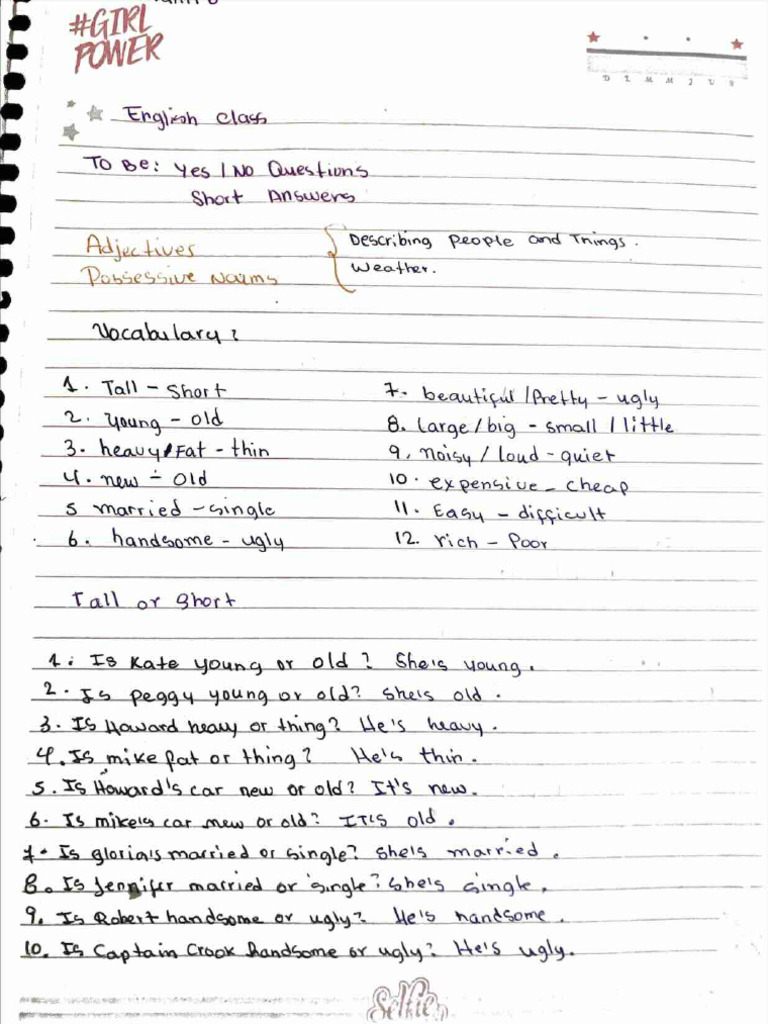 #GIRL
POWER
D L M M J V S
English class
To Be: Yes / No Questions
Short Answers
Adjectives
Possessive Nouns
Describing people and Things.
Weather.
Vocabulary:
1. Tall - Short
2. young - old
3. heavy/Fat - thin
4. new - old
5 married - single
6. handsome - ugly
7. beautiful / Pretty - ugly
8. large / big - small / little
9. noisy / loud - quiet
10. expensive - cheap
11. Easy - difficult
12. rich - Poor
Tall or Short
1. Is Kate young or old? She's young.
2. Is peggy young or old? She's old.
3. Is Howard heavy or thing? He's heavy.
4. Is mike fat or thing? He's thin.
5. Is Howard's car new or old? It's new.
6. Is mike's car new or old? IT's old.
7. Is gloria's married or single? she's married.
8. Is Jennifer married or single? she's single.
9. Is Robert handsome or ugly? He's handsome.
10. Is Captain Crook handsome or ugly? He's ugly.
Selfie